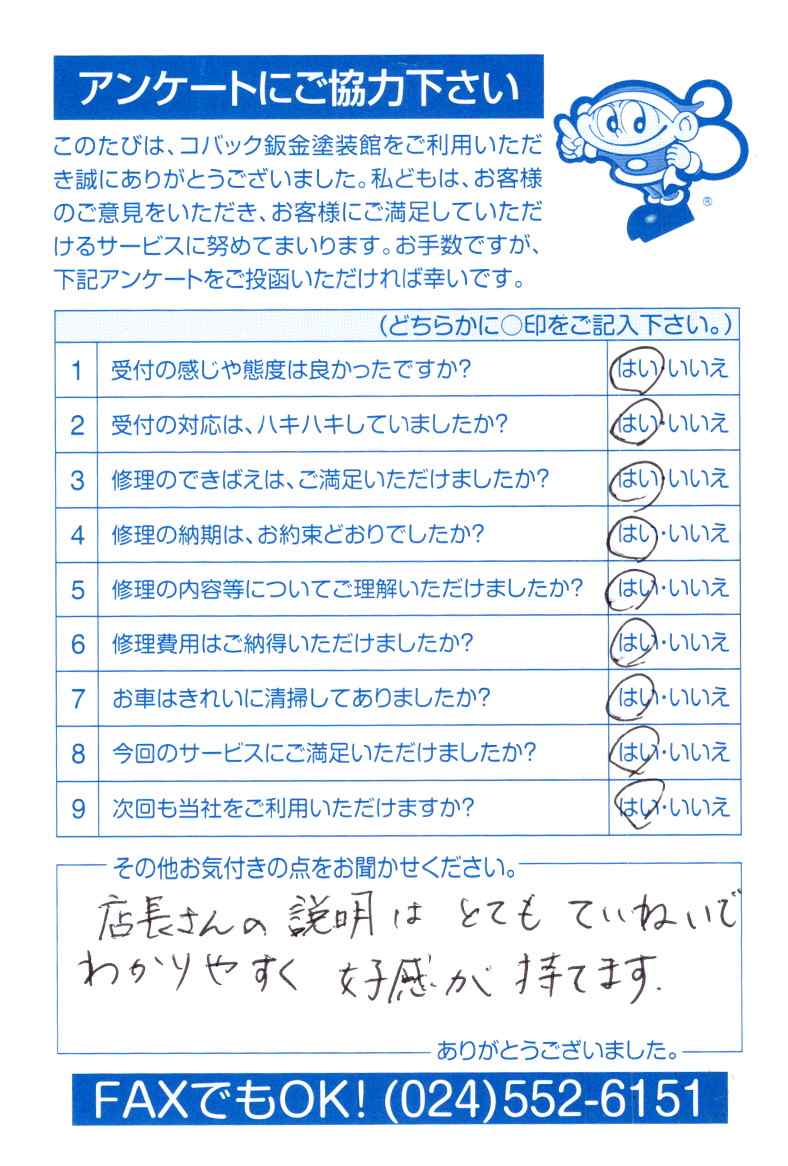 アンケートにご協力下さい
このたびは、コバック鈑金塗装館をご利用いただ
き誠にありがとうございました。私どもは、お客様
のご意見をいただき、お客様にご満足していただ
けるサービスに努めてまいります。お手数ですが、
下記アンケートをご投函いただければ幸いです。
®
(どちらかに○印をご記入下さい。)
1 受付の感じや態度は良かったですか? はい・いいえ
2 受付の対応は、ハキハキしていましたか? はい・いいえ
3 修理のできばえは、ご満足いただけましたか? はい・いいえ
4 修理の納期は、お約束どおりでしたか? はい・いいえ
5 修理の内容等についてご理解いただけましたか? はい・いいえ
6 修理費用はご納得いただけましたか? はい・いいえ
7 お車はきれいに清掃してありましたか? はい・いいえ
8 今回のサービスにご満足いただけましたか? はい・いいえ
9 次回も当社をご利用いただけますか? はい・いいえ
その他お気付きの点をお聞かせください。
店長さんの説明は とても ていねいで
わかりやすく 好感が 持てます.
ありがとうございました。
FAXでもOK! (024)552-6151